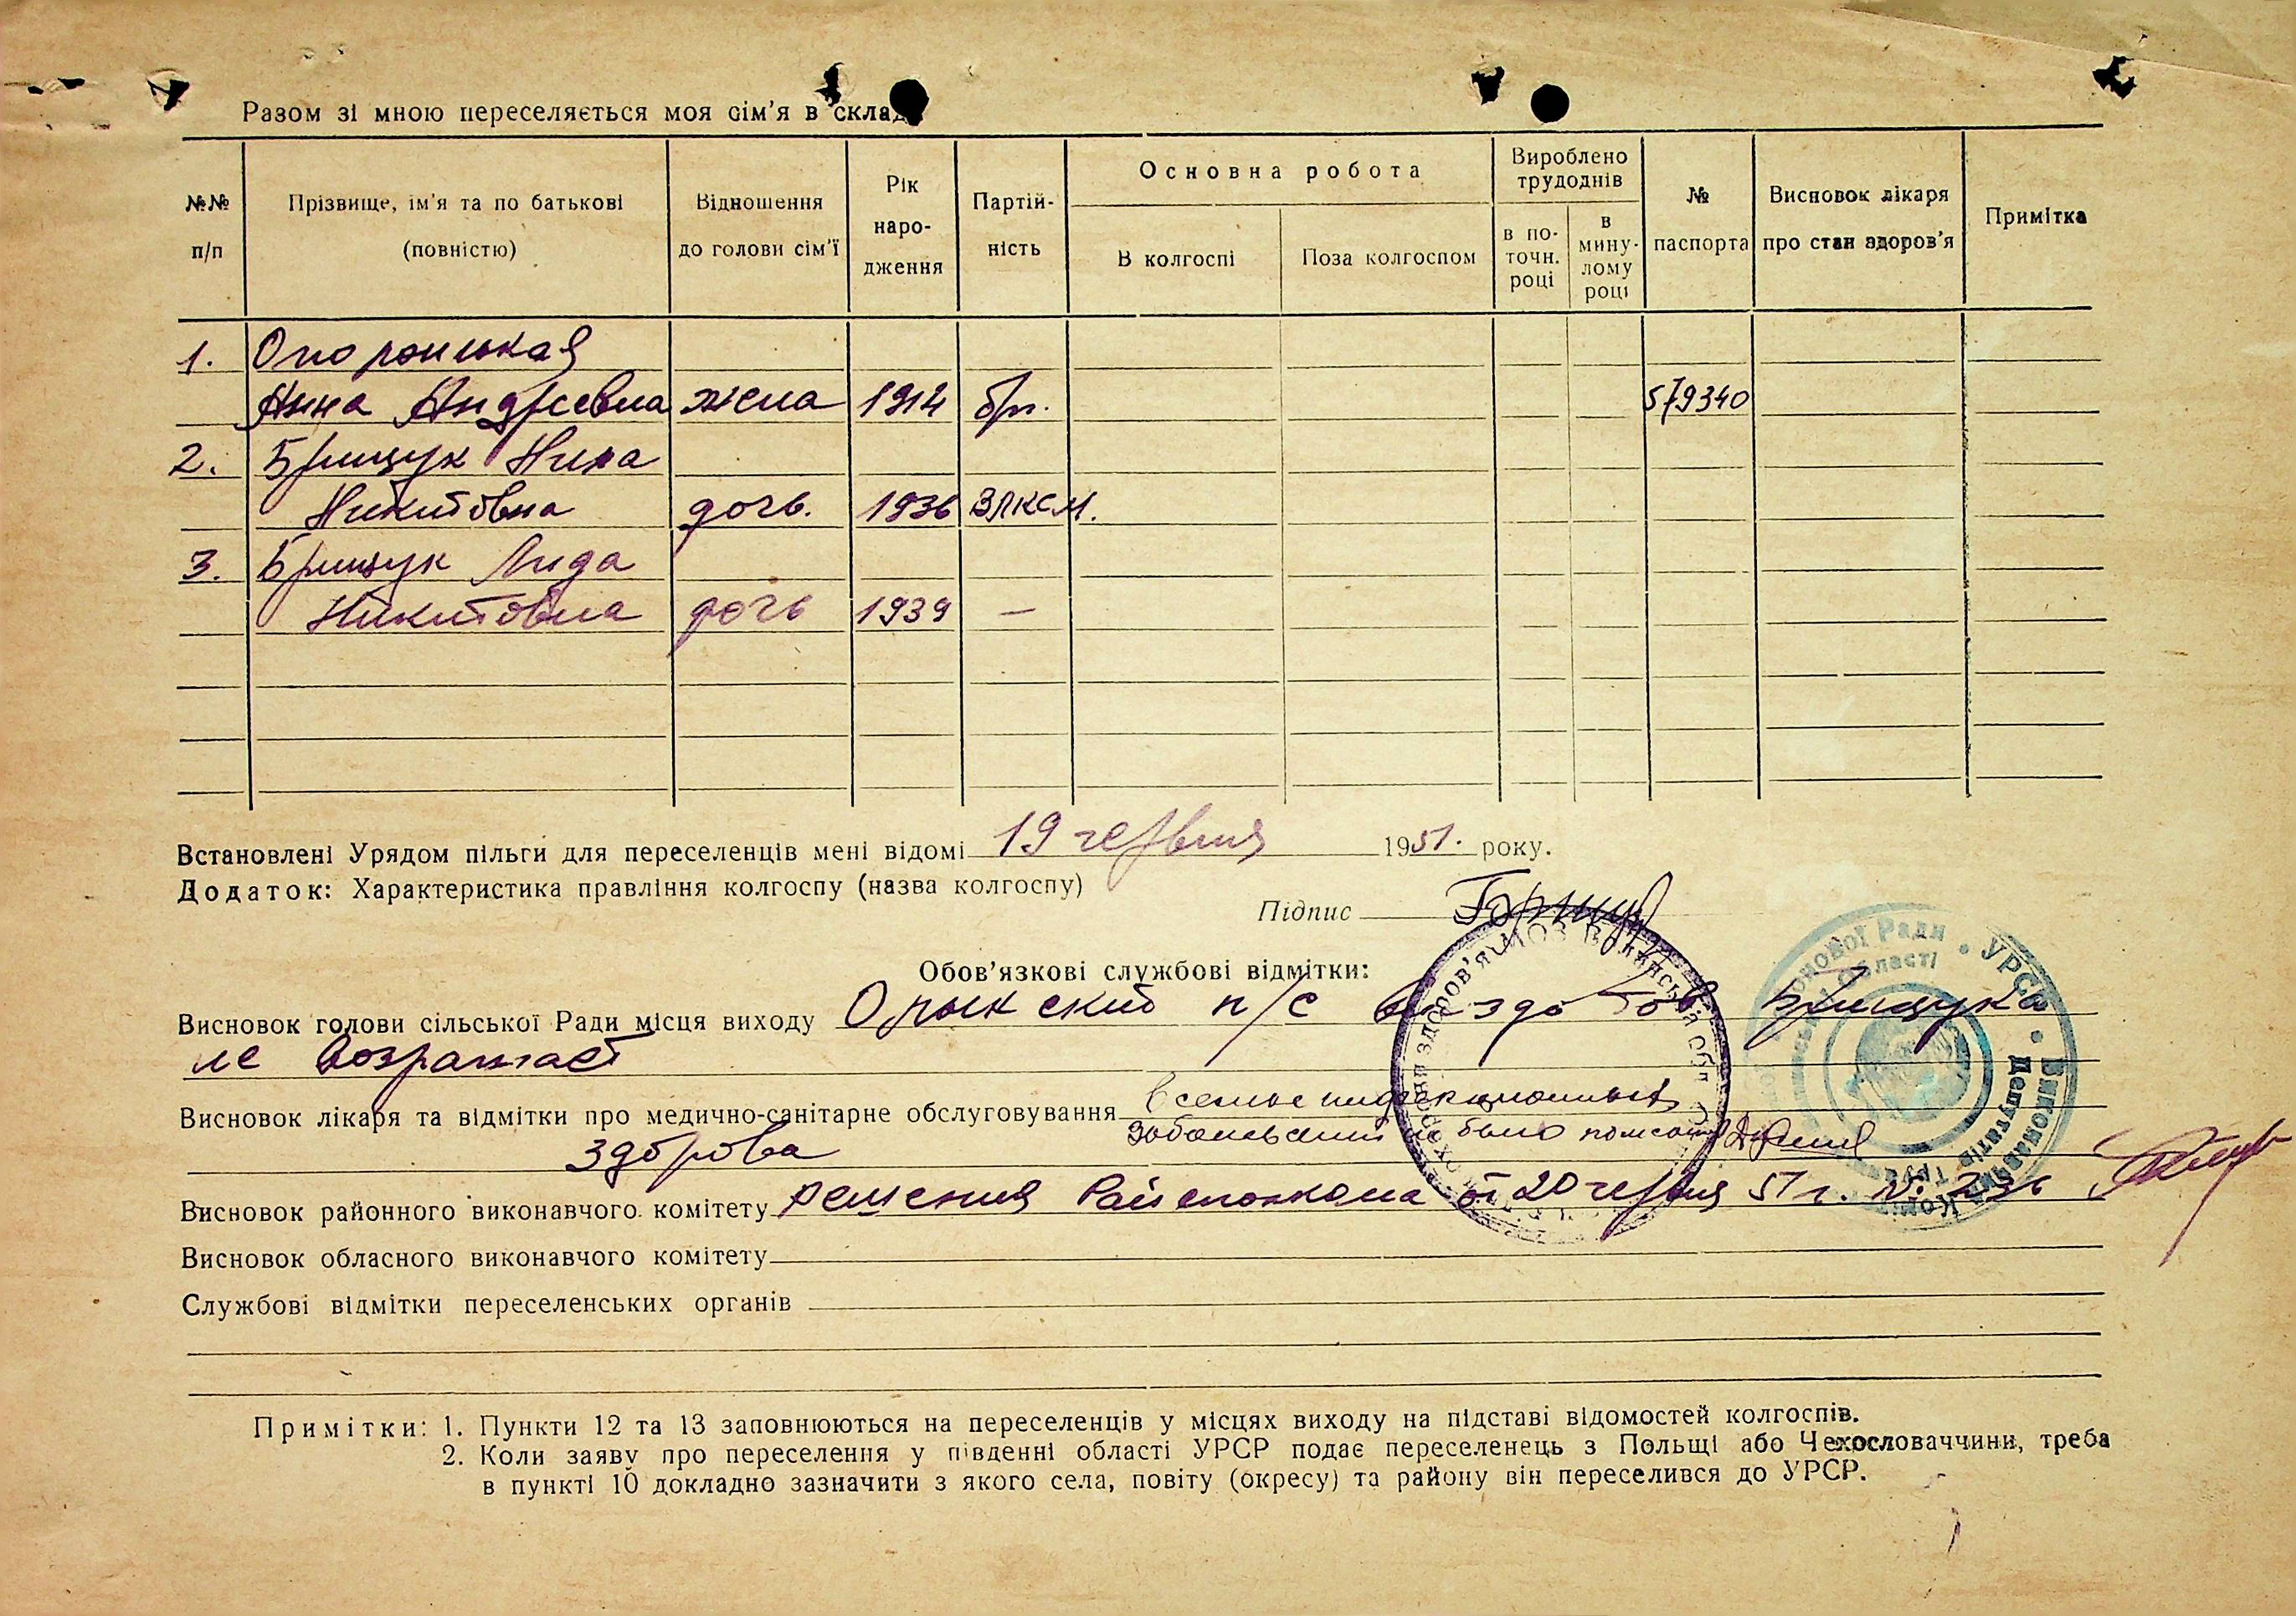 Разом зі мною переселяється моя сім'я в склад
№№ п/п
Прізвище, ім'я та по батькові (повністю)
Відношення до голови сім'ї
Рік народження
Партійність
Основна робота
В колгоспі
Поза колгоспом
Вироблено трудоднів
в поточн. році
в минулому році
№ паспорта
Висновок лікаря про стан здоров'я
Примітка
1.
Анна Андреевна жена 1914 бп. 579340
2. Брищук Нина
Никитовна дочь. 1936 ВЛКСМ.
3. Брищук Лида
Никитовна дочь 1939 —
Встановлені Урядом пільги для переселенців мені відомі 19 червня 1951. року.
Додаток: Характеристика правління колгоспу (назва колгоспу)
Підпис
Обов'язкові службові відмітки:
Висновок голови сільської Ради місця виходу Олыкский п/с Брищука
не возражает
Висновок лікаря та відмітки про медично-санітарне обслуговування В семье инфекционных
заболеваний не было
здорова
Висновок районного виконавчого комітету решения от 20 червня 51 г. № 236
Висновок обласного виконавчого комітету
Службові відмітки переселенських органів
Примітки: 1. Пункти 12 та 13 заповнюються на переселенців у місцях виходу на підставі відомостей колгоспів.
2. Коли заяву про переселення у південні області УРСР подає переселенець з Польщі або Чехословаччини, треба
в пункті 10 докладно зазначити з якого села, повіту (окресу) та району він переселився до УРСР.